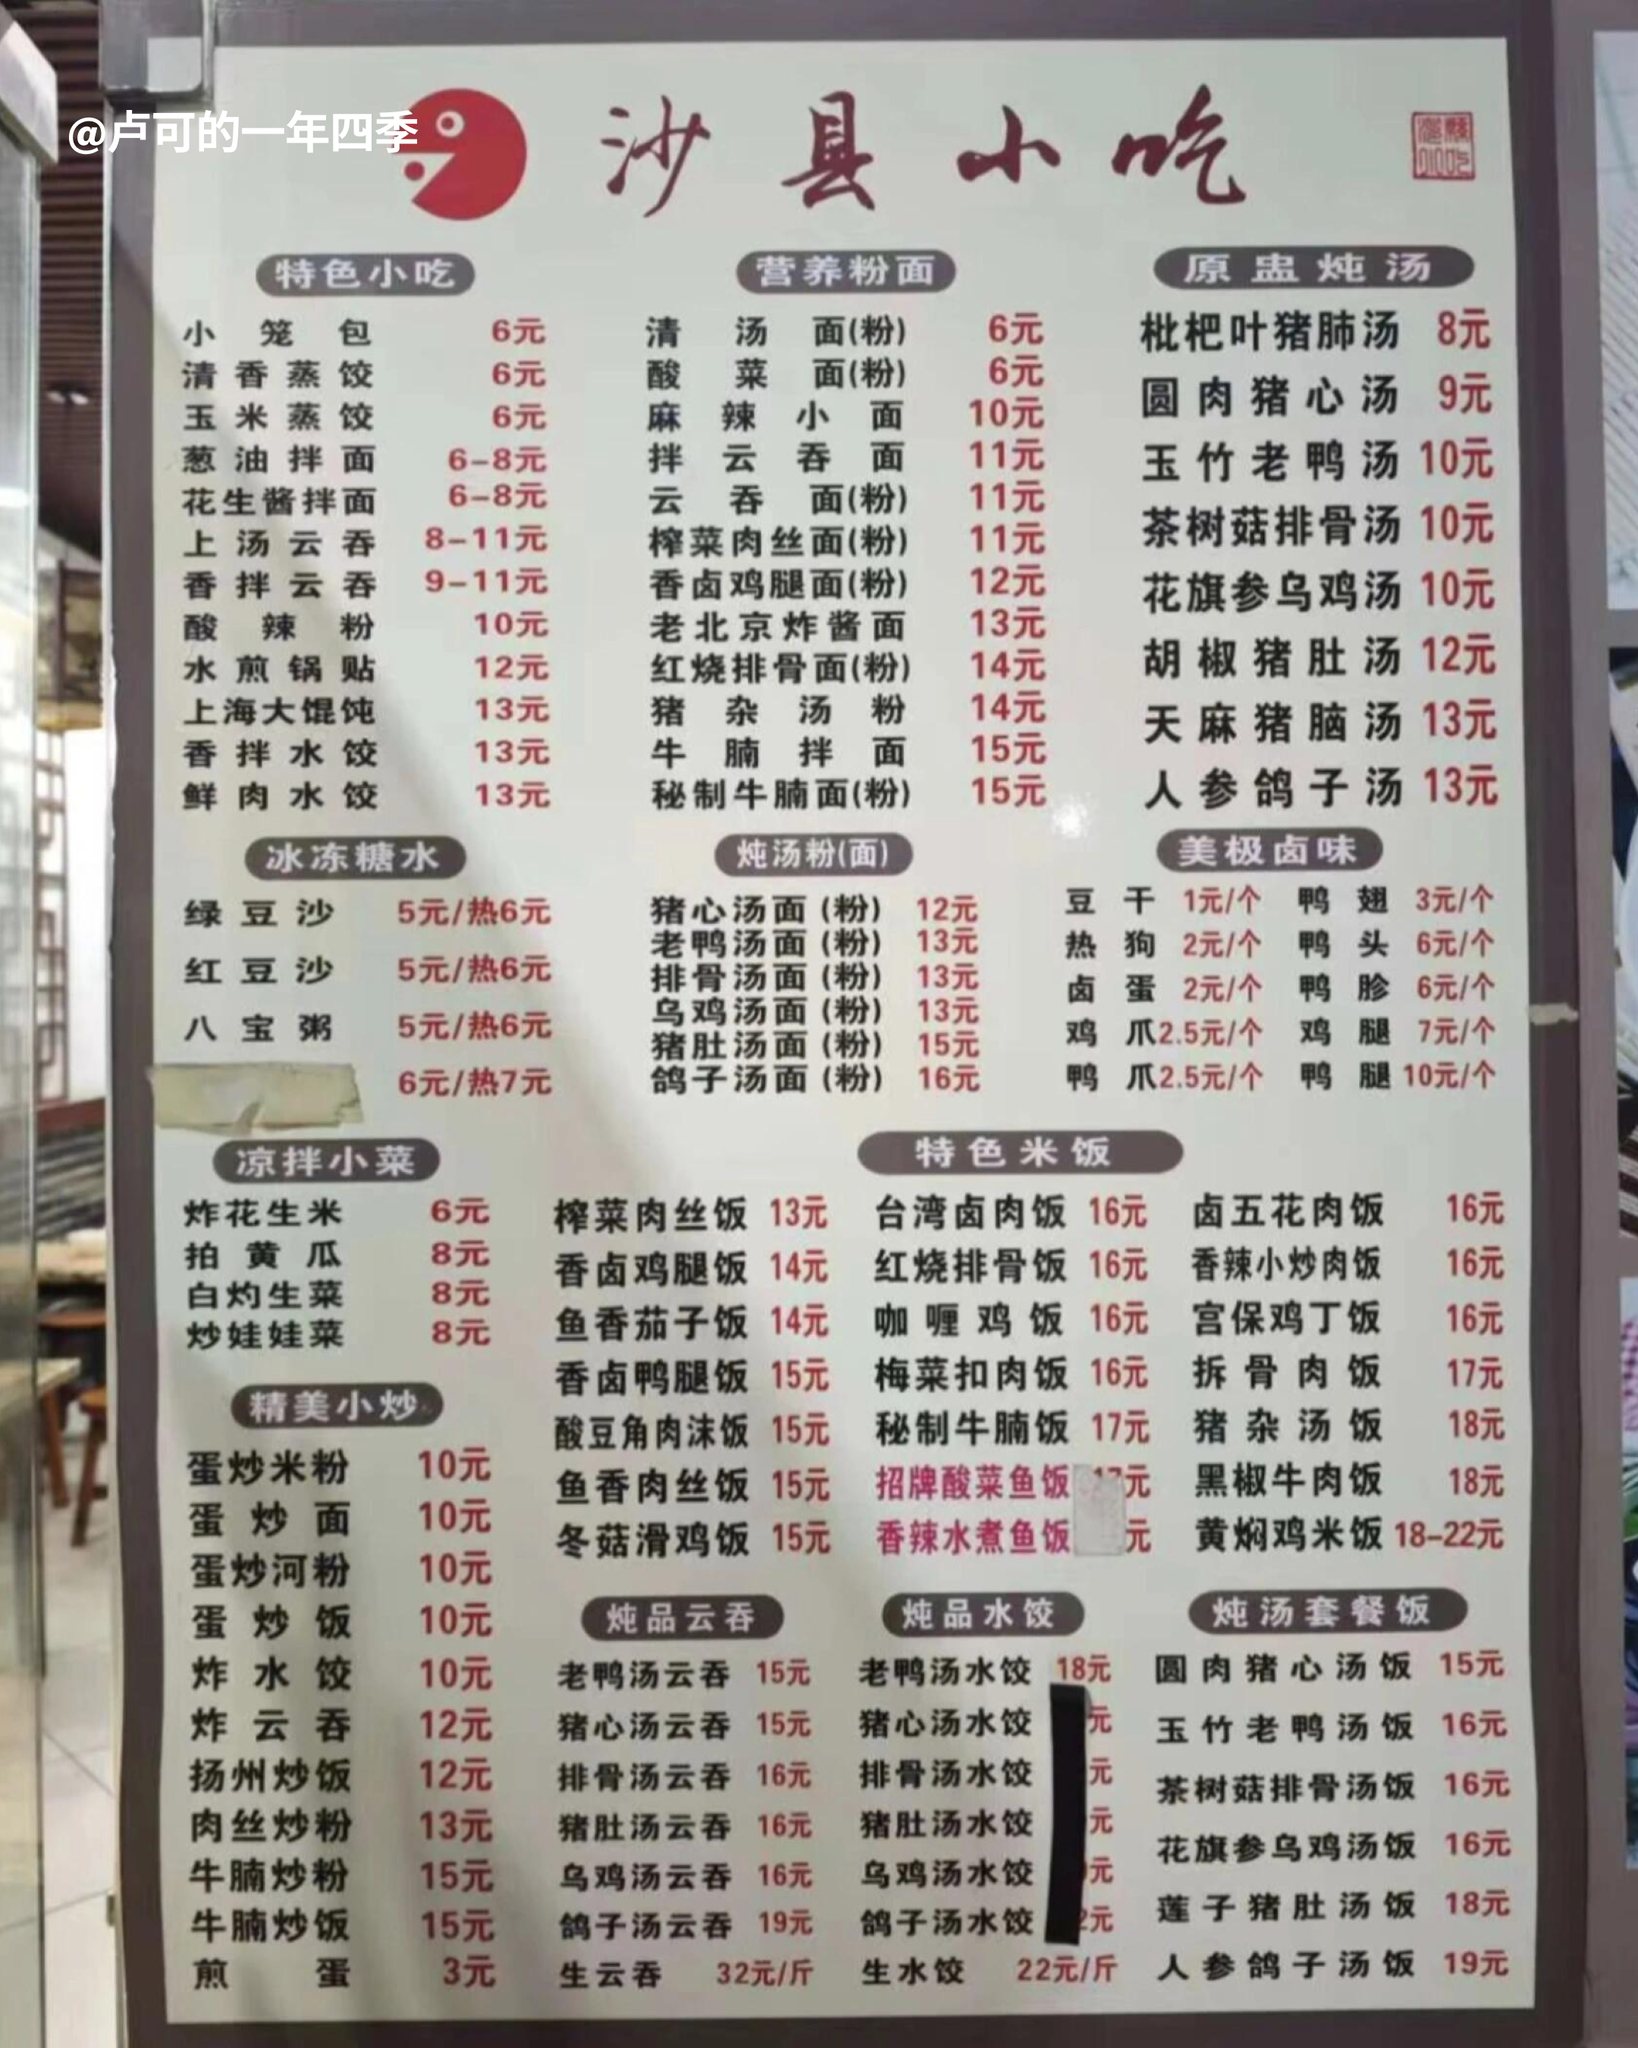 @卢可的一年四季
沙县小吃
特色小吃
小笼包 6元
清香蒸饺 6元
玉米蒸饺 6元
葱油拌面 6-8元
花生酱拌面 6-8元
上汤云吞 8-11元
香拌云吞 9-11元
酸辣粉 10元
水煎锅贴 12元
上海大馄饨 13元
香拌水饺 13元
鲜肉水饺 13元
营养粉面
清汤面(粉) 6元
酸菜面(粉) 6元
麻辣小面 10元
拌云吞面 11元
云吞面(粉) 11元
榨菜肉丝面(粉) 11元
香卤鸡腿面(粉) 12元
老北京炸酱面 13元
红烧排骨面(粉) 14元
猪杂汤粉 14元
牛腩拌面 15元
秘制牛腩面(粉) 15元
原盅炖汤
枇杷叶猪肺汤 8元
圆肉猪心汤 9元
玉竹老鸭汤 10元
茶树菇排骨汤 10元
花旗参乌鸡汤 10元
胡椒猪肚汤 12元
天麻猪脑汤 13元
人参鸽子汤 13元
冰冻糖水
绿豆沙 5元/热6元
红豆沙 5元/热6元
八宝粥 5元/热6元
6元/热7元
炖汤粉(面)
猪心汤面(粉) 12元
老鸭汤面(粉) 13元
排骨汤面(粉) 13元
乌鸡汤面(粉) 13元
猪肚汤面(粉) 15元
鸽子汤面(粉) 16元
美极卤味
豆干 1元/个 鸭翅 3元/个
热狗 2元/个 鸭头 6元/个
卤蛋 2元/个 鸭胗 6元/个
鸡爪 2.5元/个 鸡腿 7元/个
鸭爪 2.5元/个 鸭腿 10元/个
凉拌小菜
炸花生米 6元
拍黄瓜 8元
白灼生菜 8元
炒娃娃菜 8元
精美小炒
蛋炒米粉 10元
蛋炒面 10元
蛋炒河粉 10元
蛋炒饭 10元
炸水饺 10元
炸云吞 12元
扬州炒饭 12元
肉丝炒粉 13元
牛腩炒粉 15元
牛腩炒饭 15元
煎蛋 3元
特色米饭
榨菜肉丝饭 13元
香卤鸡腿饭 14元
鱼香茄子饭 14元
香卤鸭腿饭 15元
酸豆角肉沫饭 15元
鱼香肉丝饭 15元
冬菇滑鸡饭 15元
台湾卤肉饭 16元
红烧排骨饭 16元
咖喱鸡饭 16元
梅菜扣肉饭 16元
秘制牛腩饭 17元
招牌酸菜鱼饭 元
香辣水煮鱼饭 元
卤五花肉饭 16元
香辣小炒肉饭 16元
宫保鸡丁饭 16元
拆骨肉饭 17元
猪杂汤饭 18元
黑椒牛肉饭 18元
黄焖鸡米饭 18-22元
炖品云吞
老鸭汤云吞 15元
猪心汤云吞 15元
排骨汤云吞 16元
猪肚汤云吞 16元
乌鸡汤云吞 16元
鸽子汤云吞 19元
生云吞 32元/斤
炖品水饺
老鸭汤水饺 18元
猪心汤水饺 元
排骨汤水饺 元
猪肚汤水饺 元
乌鸡汤水饺 元
鸽子汤水饺 元
生水饺 22元/斤
炖汤套餐饭
圆肉猪心汤饭 15元
玉竹老鸭汤饭 16元
茶树菇排骨汤饭 16元
花旗参乌鸡汤饭 16元
莲子猪肚汤饭 18元
人参鸽子汤饭 19元